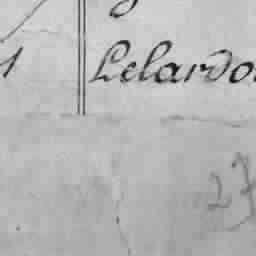 1 Lelardo
27